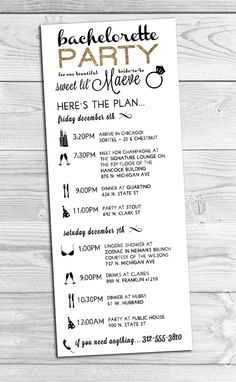 bachelorette
PARTY
for our beautiful bride-to-be
sweet lil' Maeve
HERE'S THE PLAN...
friday december 6th
3:20PM ARRIVE IN CHICAGO!
SOFITEL - 20 E CHESTNUT
7:30PM MEET FOR CHAMPAGNE AT
THE SIGNATURE LOUNGE ON
THE 95th FLOOR OF THE
HANCOCK BUILDING
875 N. MICHIGAN AVE
9:00PM DINNER AT QUARTINO
626 N. STATE ST
11:00PM PARTY AT STOUT
642 N. CLARK ST
saturday december 7th
1:00PM LINGERIE SHOWER AT
ZODIAC IN NEIMANS BRUNCH
COURTESY OF THE WILSONS
737 N. MICHIGAN AVE
9:00PM DRINKS AT CLAIRES
899 N. FRANKLIN #1210
10:30PM DINNER AT HUB51
51 W. HUBBARD
12:00AM PARTY AT PUBLIC HOUSE
400 N. STATE ST
if you need anything... 312-555-3810